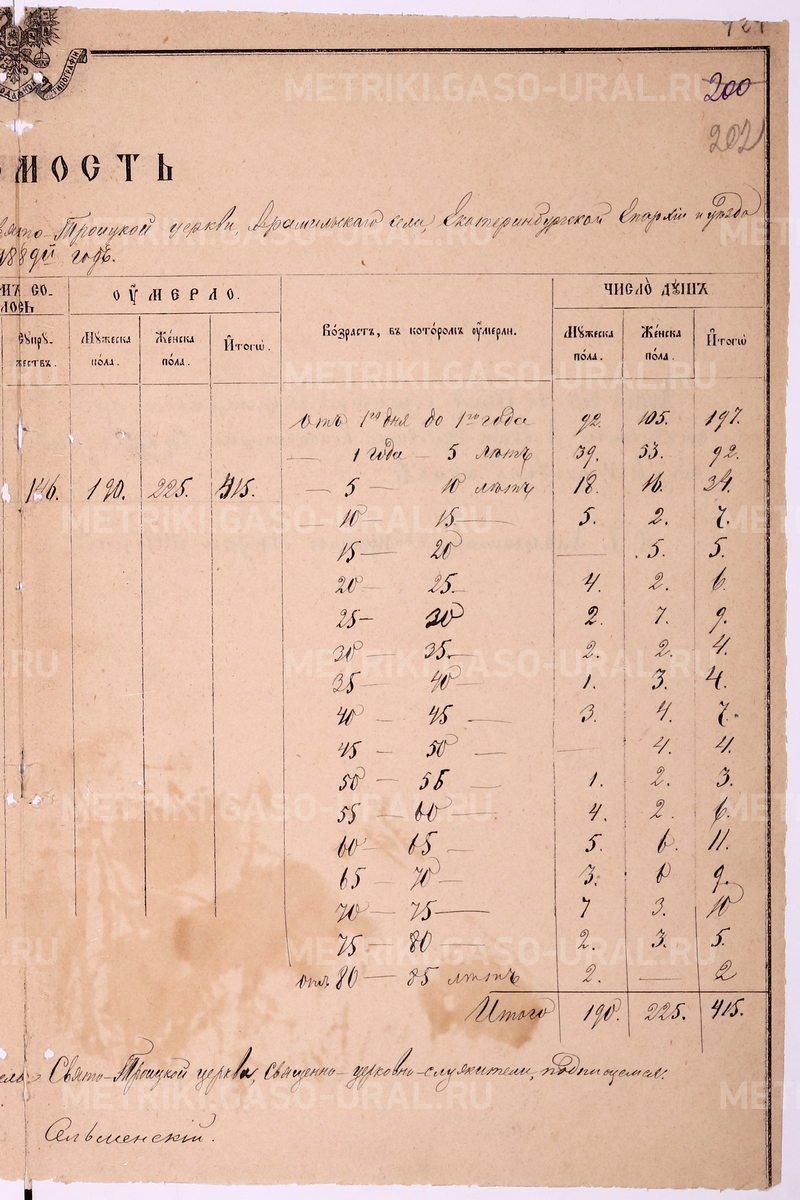 200
202
МОСТЬ
Свято-Троицкой церкви, Арамильскаго села, Екатеринбургской Епархіи и уѣзда
1889й годъ.
ОУМЕРЛО. ЧИСЛО ДУШЪ
СУПРУ-ЖЕСТВЪ. Мужеска пола. Женска пола. Итогѡ. Возрастъ, въ которомъ оумерли. Мужеска пола. Женска пола. Итогѡ
отъ 1го дня до 1го года 92. 105. 197.
— 1 года — 5 лѣтъ 39. 53. 92.
146. 190. 225. 415. — 5 — 10 лѣтъ 18. 16. 34.
— 10 15 — 5. 2. 7.
15 — 20 — 5. 5.
20 — 25. 4. 2. 6.
25 — 30 2. 7. 9.
30 — 35. 2. 2. 4.
35 — 40 — 1. 3. 4.
40 — 45 — 3. 4. 7.
45 — 50 — — 4. 4.
50 — 55 — 1. 2. 3.
55 — 60 — 4. 2. 6.
60 — 65 — 5. 6. 11.
65 — 70 — 3. 6 9.
70 — 75 — 7 3. 10
75 — 80 — 2. 3. 5.
отъ 80 — 85 лѣтъ 2. — 2
Итого 190. 225. 415.
Свято-Троицкой церкви, священно-церковно-служители, подписуемся:
Сельменскій.
METRIKI.GASO-URAL.RU